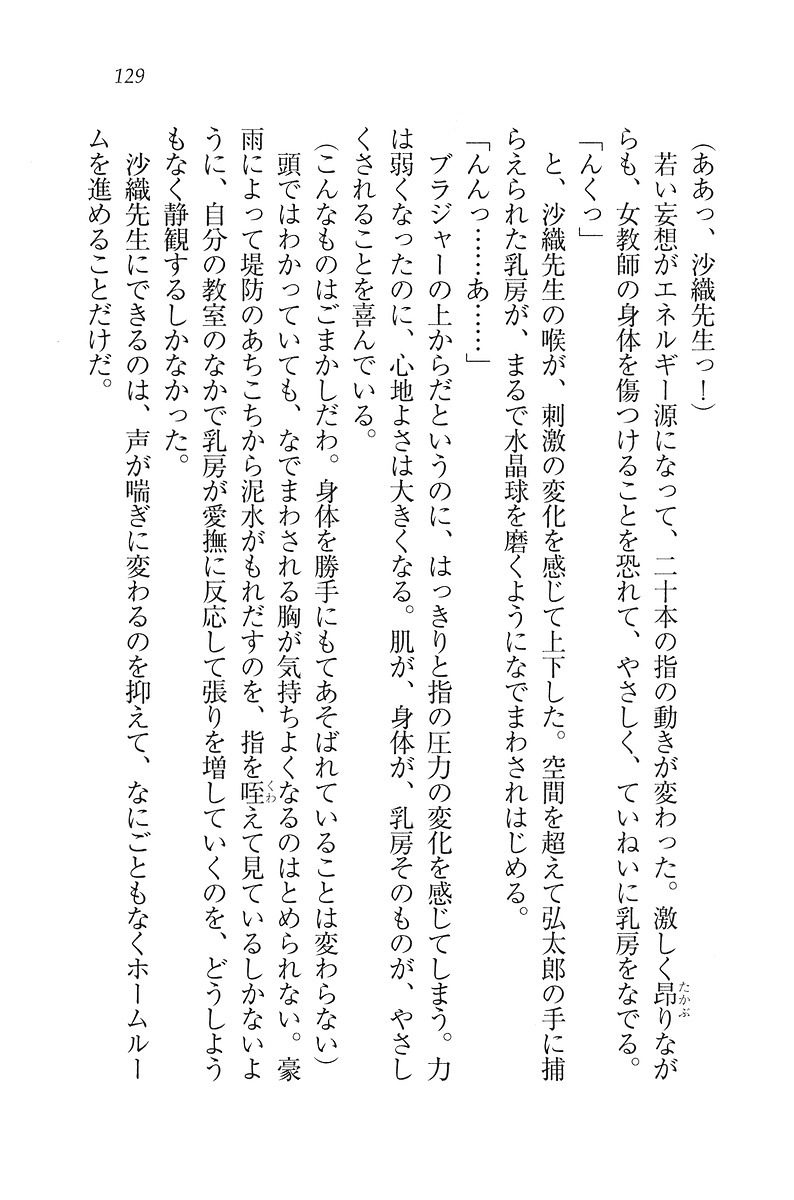 129
(ああっ、沙織先生っ!)
若い妄想がエネルギー源になって、二十本の指の動きが変わった。激しく昂りなが
たかぶ
らも、女教師の身体を傷つけることを恐れて、やさしく、ていねいに乳房をなでる。
「んくっ」
と、沙織先生の喉が、刺激の変化を感じて上下した。空間を超えて弘太郎の手に捕
らえられた乳房が、まるで水晶球を磨くようになでまわされはじめる。
「んんっ……あ……」
ブラジャーの上からだというのに、はっきりと指の圧力の変化を感じてしまう。力
は弱くなったのに、心地よさは大きくなる。肌が、身体が、乳房そのものが、やさし
くされることを喜んでいる。
(こんなものはごまかしだわ。身体を勝手にもてあそばれていることは変わらない)
頭ではわかっていても、なでまわされる胸が気持ちよくなるのはとめられない。豪
雨によって堤防のあちこちから泥水がもれだすのを、指を咥えて見ているしかないよ
くわ
うに、自分の教室のなかで乳房が愛撫に反応して張りを増していくのを、どうしよう
もなく静観するしかなかった。
沙織先生にできるのは、声が喘ぎに変わるのを抑えて、なにごともなくホームルー
ムを進めることだけだ。